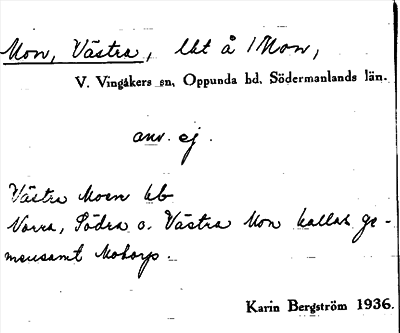 Mon, Västra, lht å 1 Mon,
V. Vingåkers sn, Oppunda hd, Södermanlands län.
anv. ej.
Västra Moen hb
Norra, Södra o. Västra Mon kallas ge-
mensamt Motorp.
Karin Bergström 1936.